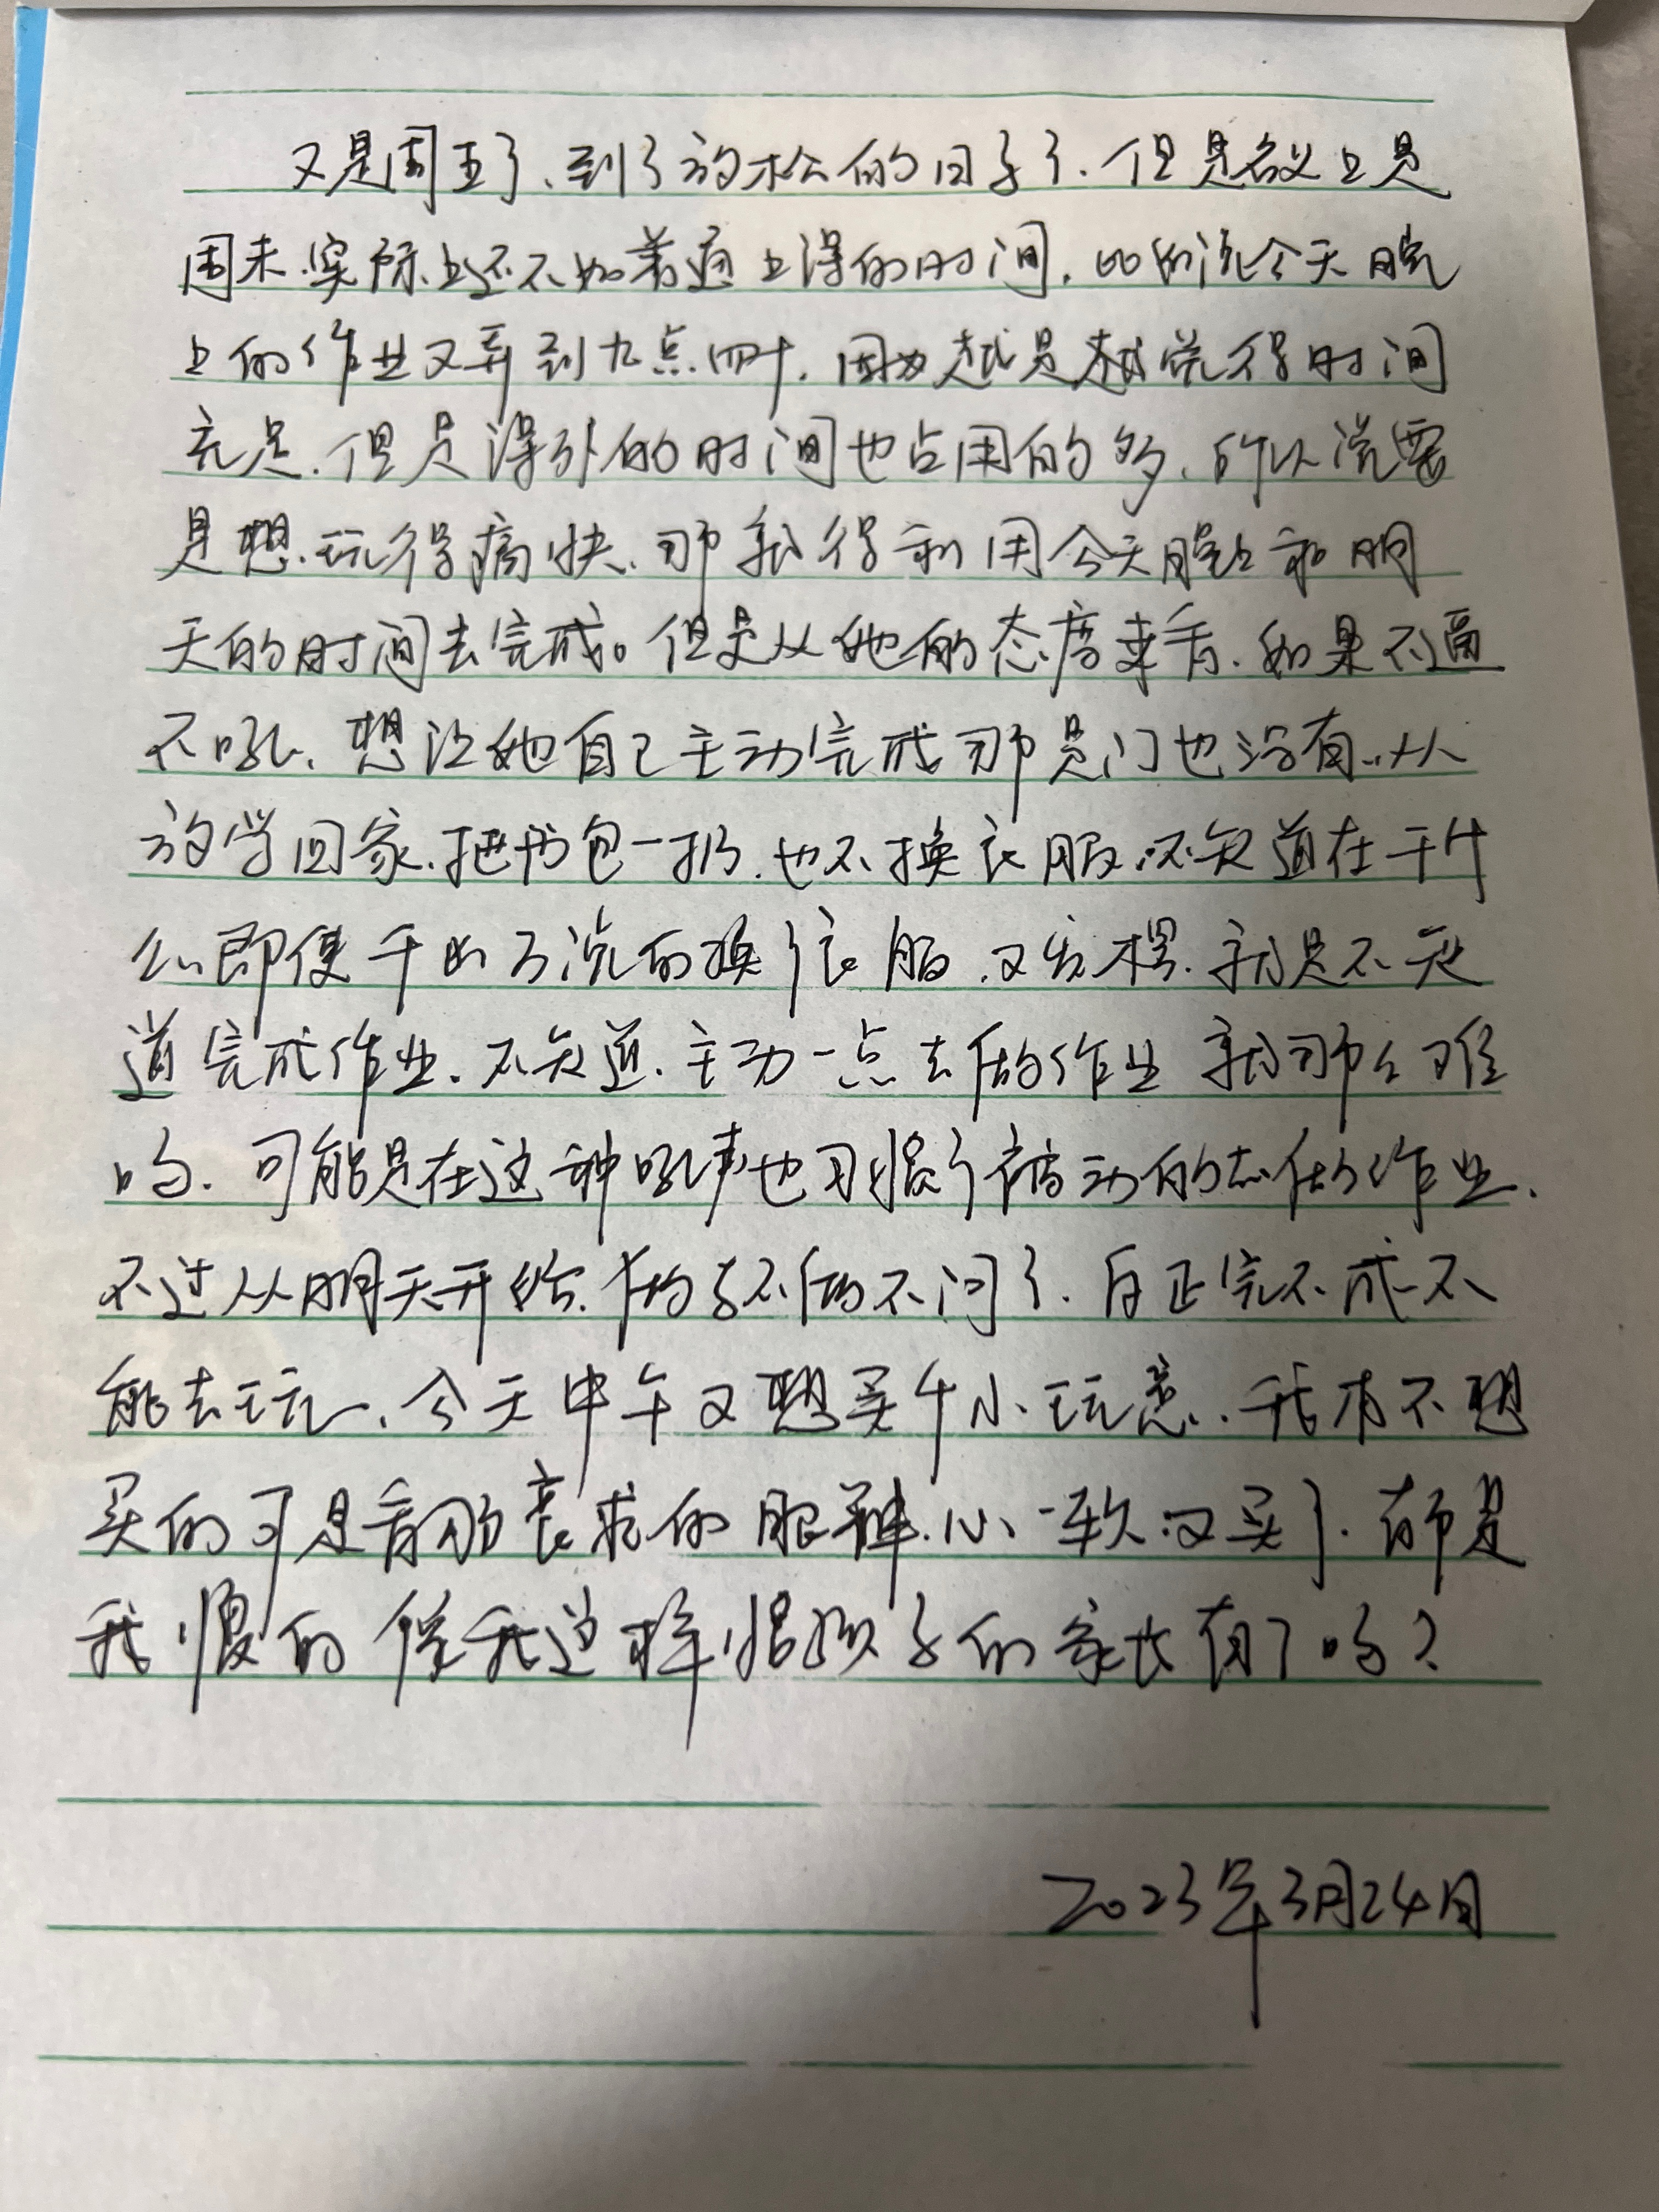 又是周五了、到了放松的日子了.但是名义上是
周末.实际上还不如普通上课的时间.比如说今天晚
上的作业又弄到九点四十.因为越是越觉得时间
充足.但是课外的时间也占用的多、所以说要
是想.玩得痛快.那就得利用今天晚上和明
天的时间去完成。但是从她的态度来看.如果不逼
不吼、想让她自己主动完成那是门也没有..从
放学回家.把书包一扔.也不换衣服.不知道在干什
么即便千叮万说的换了衣服.又发愣.就是不知
道完成作业.不知道.主动一点去做作业就那么难
吗.可能是在这种吼声也习惯了被动的去做作业.
不过从明天开始.做与不做不问了.反正完不成不
能去玩、今天中午又想买个小玩意.我本不想
买的可是看那哀求的眼神.心一软又买了.都是
我惯的像我这样惯孩子的家长有了吗?
2023年3月24日